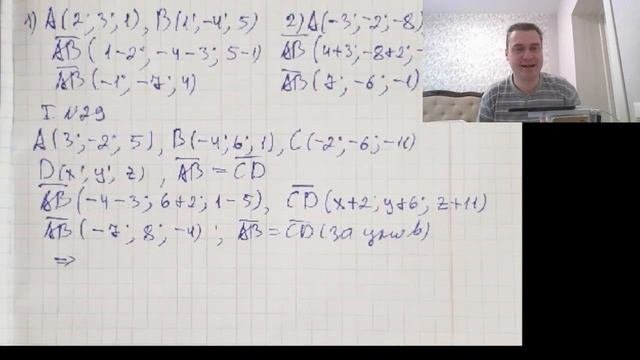 1) A(2; 3; 1), B(1; -4; 5) 2) A(-3; -2; -8)
AB(1-2; -4-3; 5-1) AB(4+3; -8+2; -
AB(-1; -7; 4) AB(7; -6; -1)
I. №29
A(3; -2; 5), B(-4; 6; 1), C(-2; -6; -11)
D(x; y; z), AB = CD
AB(-4-3; 6+2; 1-5), CD(x+2; y+6; z+11)
AB(-7; 8; -4); AB = CD (за умов)
⇒